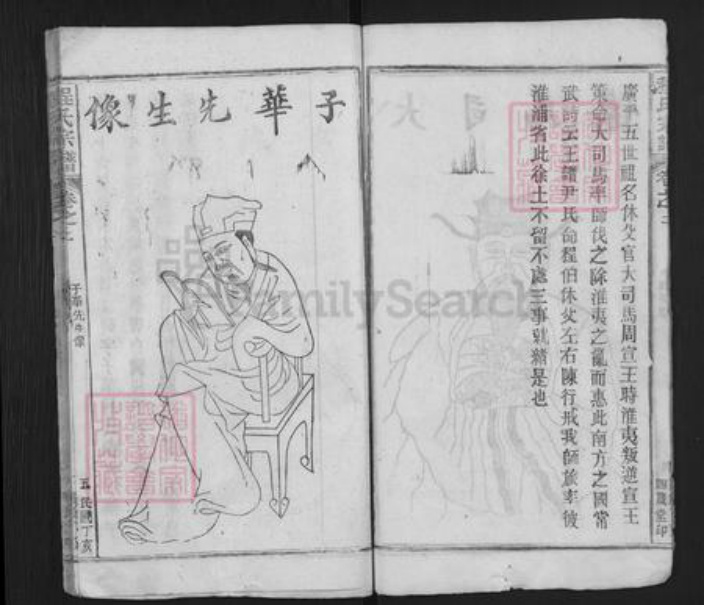 廣平五世祖名休父官大司馬周宣王時淮夷叛逆宣王
策命大司馬率師伐之除淮夷之亂而惠此南方之國常
武詩云王謂尹氏命程伯休父左右陳行戒我師旅率彼
淮浦省此徐土不留不處三事就緒是也
子華先生像
程氏宗譜
卷之
子華先生像
五
民國丁亥
FamilySearch